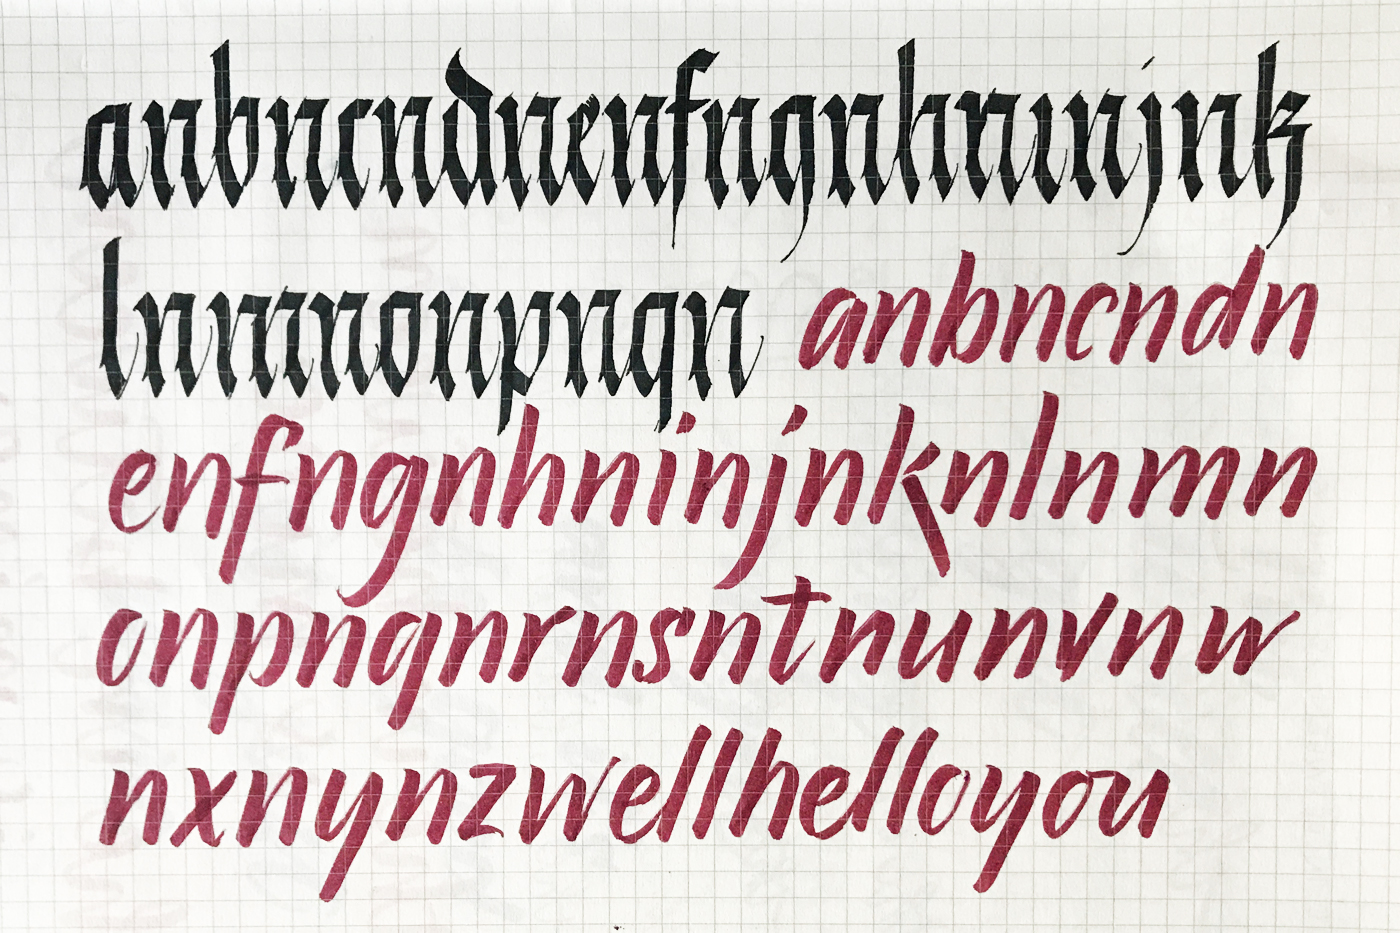 anbncndnenfngnhninjnk
lnmnonpnqn anbncndn
enfngnhninjnknlnmn
onpnqnrnsntnunvnw
nxnynzwellhelloyou